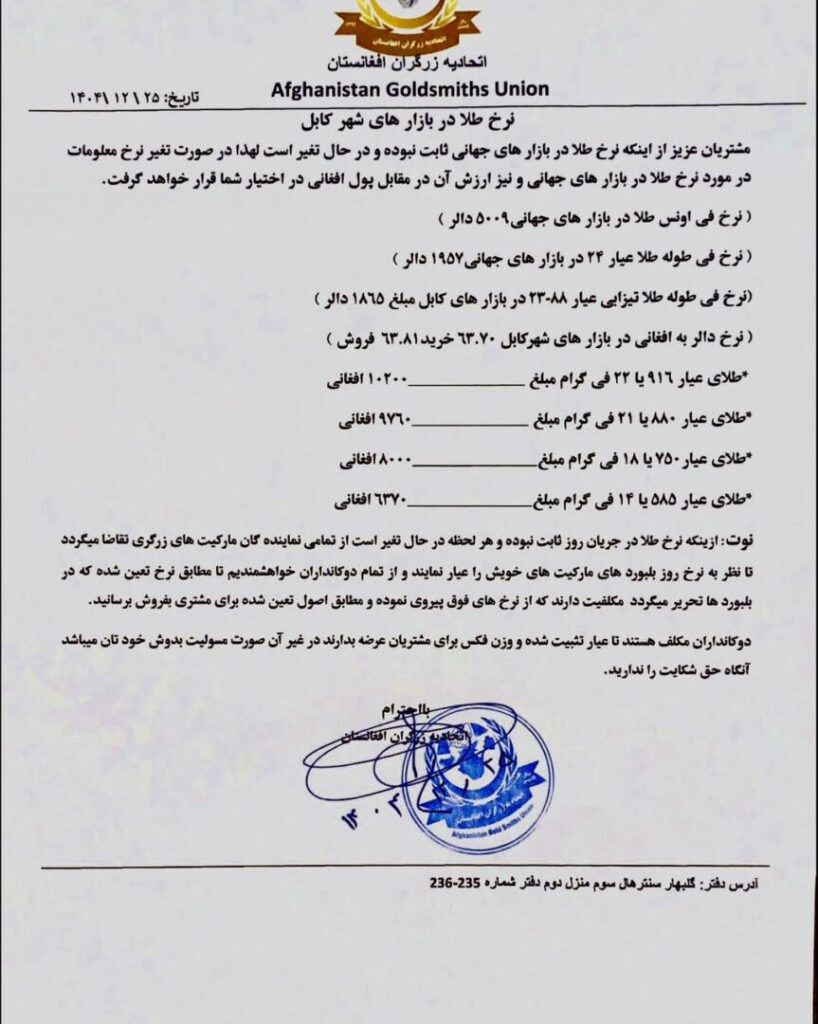 اتحادیه زرگران افغانستان
اتحادیه زرگران افغانستان
Afghanistan Goldsmiths Union
تاریخ: ۲۵ \ ۱۲ \ ۱۴۰۴
نرخ طلا در بازار های شهر کابل
مشتریان عزیز از اینکه نرخ طلا در بازار های جهانی ثابت نبوده و در حال تغیر است لهذا در صورت تغیر نرخ معلومات
در مورد نرخ طلا در بازار های جهانی و نیز ارزش آن در مقابل پول افغانی در اختیار شما قرار خواهد گرفت.
( نرخ فی اونس طلا در بازار های جهانی۵۰۰۹ دالر )
( نرخ فی طوله طلا عیار ۲۴ در بازار های جهانی۱۹۵۷ دالر )
(نرخ فی طوله طلا تیزابی عیار ۸۸-۲۳ در بازار های کابل مبلغ ۱۸۶۵ دالر )
( نرخ دالر به افغانی در بازار های شهرکابل ۶۳.۷۰ خرید۶۳.۸۱ فروش )
*طلای عیار ۹۱۶ یا ۲۲ فی گرام مبلغ ______________۱۰۲۰۰ افغانی
*طلای عیار ۸۸۰ یا ۲۱ فی گرام مبلغ ______________۹۷۶۰ افغانی
*طلای عیار ۷۵۰ یا ۱۸ فی گرام مبلغ______________۸۰۰۰ افغانی
*طلای عیار ۵۸۵ یا ۱۴ فی گرام مبلغ______________۶۳۷۰ افغانی
نوت: ازینکه نرخ طلا در جریان روز ثابت نبوده و هر لحظه در حال تغیر است از تمامی نماینده گان مارکیت های زرگری تقاضا میگردد
تا نظر به نرخ روز بلبورد های مارکیت های خویش را عیار نمایند و از تمام دوکانداران خواهشمندیم تا مطابق نرخ تعین شده که در
بلبورد ها تحریر میگردد مکلفیت دارند که از نرخ های فوق پیروی نموده و مطابق اصول تعین شده برای مشتری بفروش برسانید.
دوکانداران مکلف هستند تا عیار تثبیت شده و وزن فکس برای مشتریان عرضه بدارند در غیر آن صورت مسولیت بدوش خود تان میباشد
آنگاه حق شکایت را ندارید.
بااحترام
اتحادیه زرگران افغانستان
اتحادیه زرگران افغانستان
Afghanistan Gold Smiths Union
آدرس دفتر: گلبهار سنترهال سوم منزل دوم دفتر شماره 235-236